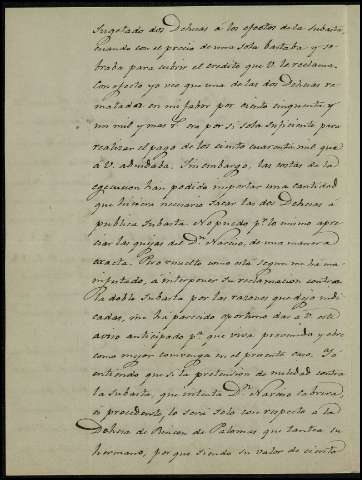 Sugetado dos Dehesas á los efectos de la subasta,
cuando con el precio de una sola bastaba y so-
braba para cubrir el credito que V. le reclama.
Con efecto yo veo que una de las dos Dehesas re-
matadas en mi fabor por ciento cinquenta y
un mil y mas r.^s era por si sola suficiente para
realizar el pago de los ciento cuarenta mil que
á V. adeudaba. Sin embargo, las costas de la
egecucion han podido importar una cantidad
que hiciera necesario sacar las dos Dehesas á
publica subasta. No puedo p.^r lo mismo apre-
ciar las quejas del D.^n Narciso, de una manera
exacta. Pero resuelto como está segun me ha ma-
nifestado, á interponer su reclamacion contra
la doble subasta por las razones que dejo indi-
cadas, me ha parecido oportuno dar á V. este
aviso anticipado p.^a que viva prevenido y obre
como mejor convenga en el presente caso. Yo
entiendo que si la pretension de nulidad contra
la subasta, que intenta D.^n Narciso Cabrera,
es procedente, lo será solo con respecto á la
Dehesa de Rincon de Palomas que tantea su
hermano, porque siendo su valor de ciento